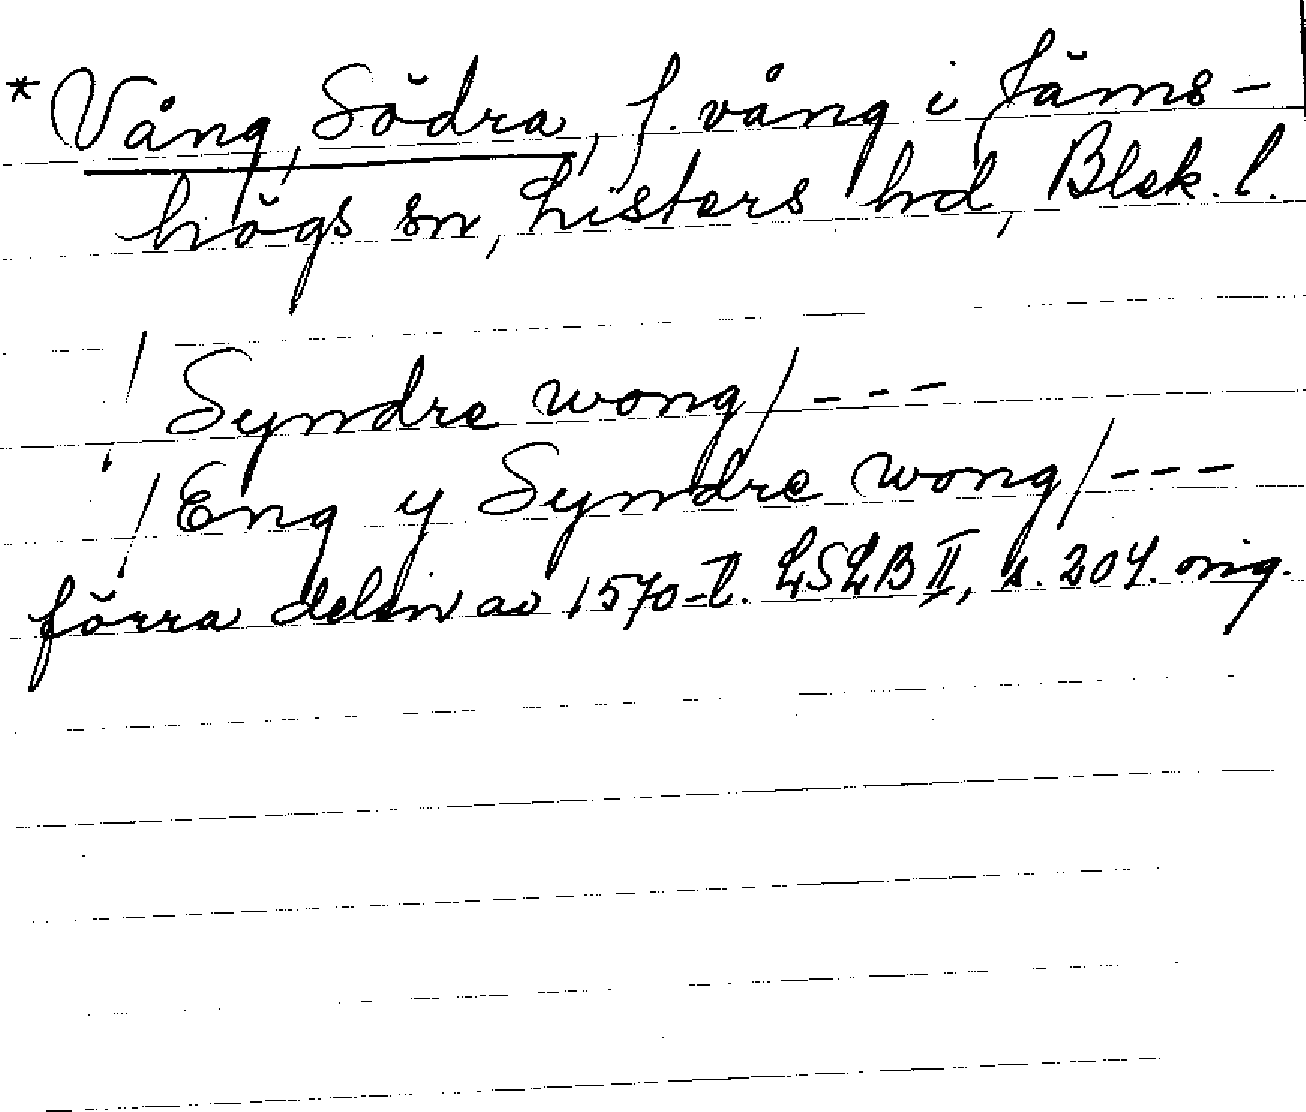 *Vång, Södra, f. vång i Jäms-
högs sn, Listers hd, Blek. l.
/Syndre wong/---
/Eng y Syndre wong/---
förra delen av 1570-t. LSLB II, s. 204. orig.